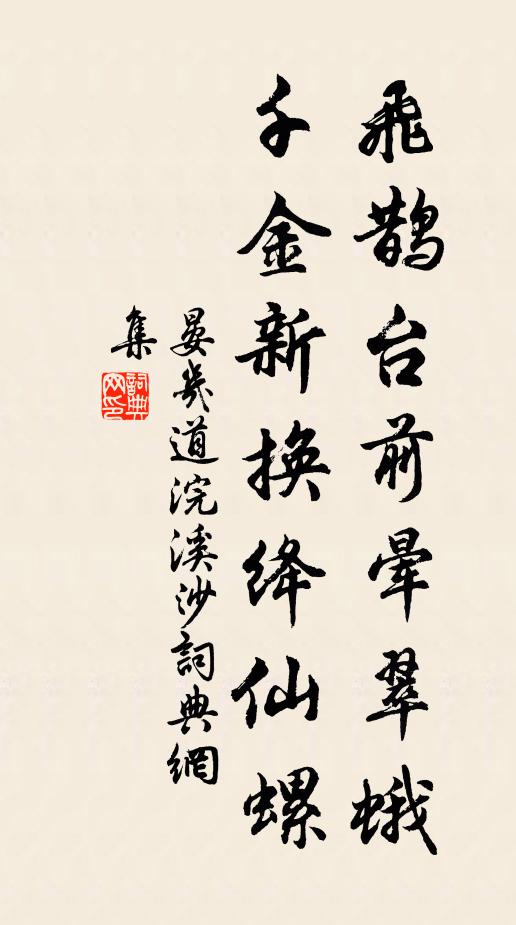 飛鵲台前暈翠蛾
千金新换绛仙螺
晏幾道浣溪沙詞典網
集
詞典網印